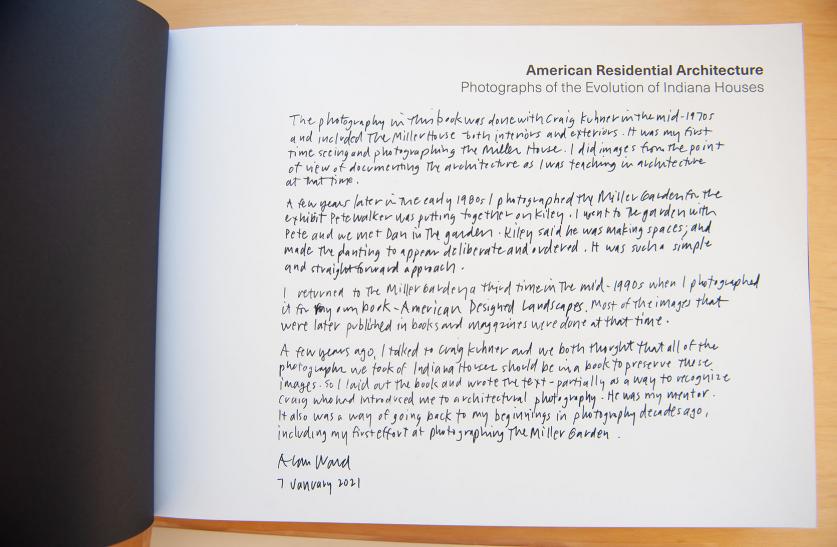 American Residential Architecture
Photographs of the Evolution of Indiana Houses
The photography in this book was done with Craig Kuhner in the mid-1970s
and included The Miller House both interiors and exteriors. It was my first
time seeing and photographing the Miller House. I did images from the point
of view of documenting the architecture as I was teaching in architecture
at that time.
A few years later in the early 1980s I photographed the Miller Garden for the
exhibit Pete Walker was putting together on Kiley. I went to the garden with
Pete and we met Dan in the garden. Kiley said he was making spaces; and
made the planting to appear deliberate and ordered. It was such a simple
and straightforward approach.
I returned to the Miller Garden a third time in the mid-1990s when I photographed
it for my own book - American Designed Landscapes. Most of the images that
were later published in books and magazines were done at that time.
A few years ago, I talked to Craig Kuhner and we both thought that all of the
photographs we took of Indiana Houses should be in a book to preserve these
images. So I laid out the book and wrote the text - partially as a way to recognize
Craig who had introduced me to architectural photography. He was my mentor.
It also was a way of going back to my beginnings in photography decades ago,
including my first effort at photographing The Miller Garden.
Alan Ward
7 January 2021